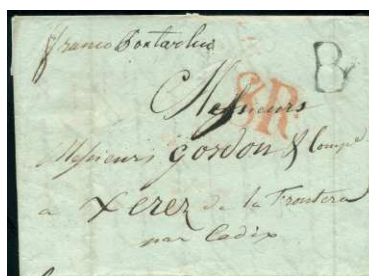 franco Pontarlier
B
Messieurs
8R
Messieurs Gordon & Compe
a Xerez de la Frontera
par Cadix